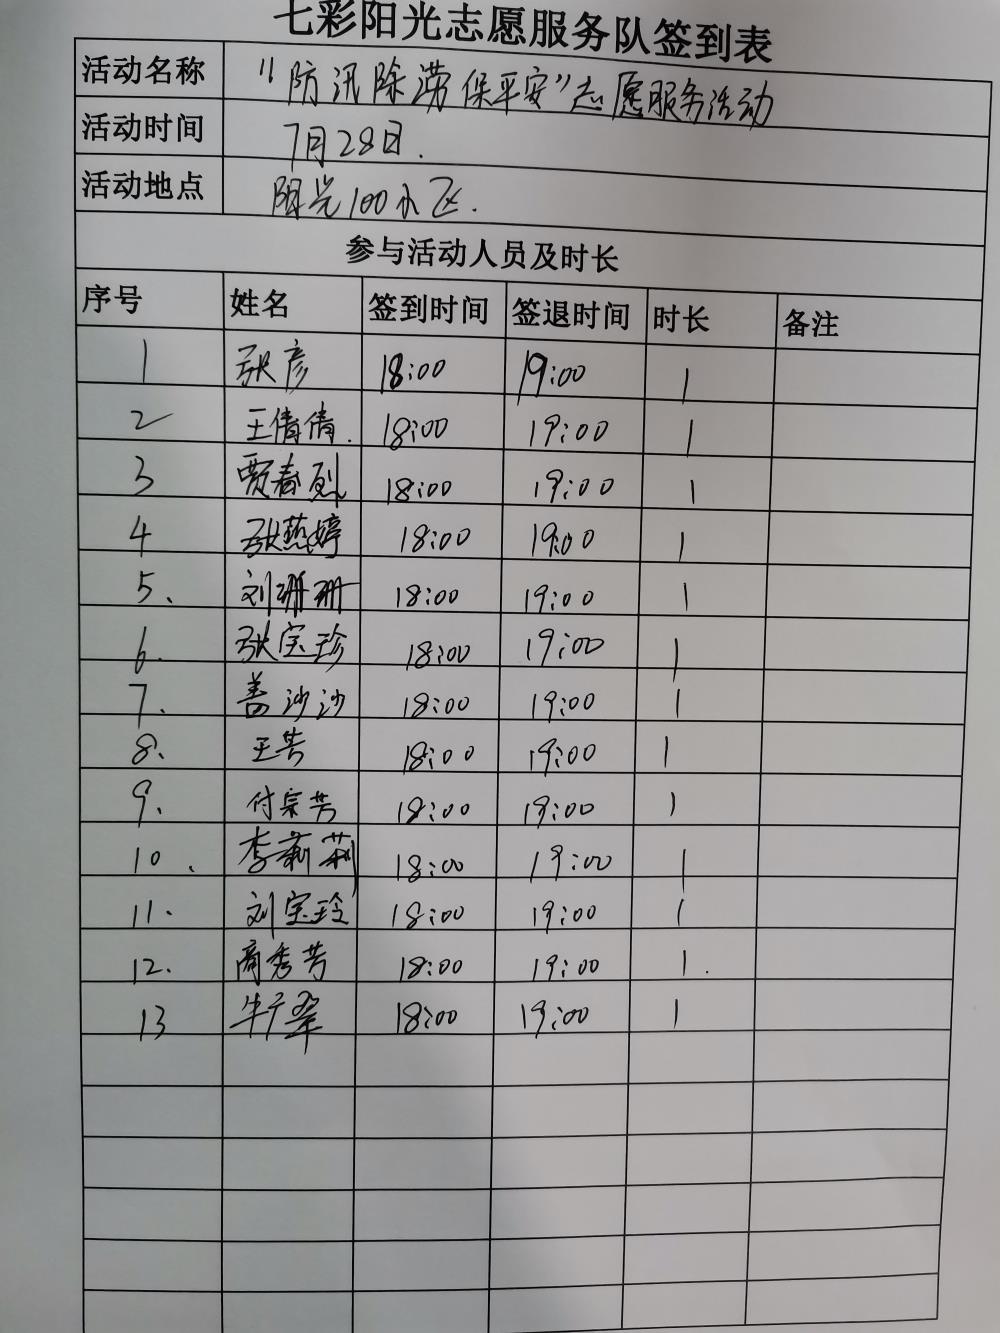 七彩阳光志愿服务队签到表
活动名称 “防汛除涝保平安”志愿服务活动
活动时间 7月28日.
活动地点 阳光100小区.
参与活动人员及时长
序号 姓名 签到时间 签退时间 时长 备注
1 张彦 18:00 19:00 1
2 王倩倩. 18:00 19:00 1
3 贾春烈 18:00 19:00 1
4 张燕婷 18:00 19:00 1
5、 刘珊珊 18:00 19:00 1
6. 张宝珍 18:00 19:00 1
7. 沙沙 18:00 19:00 1
8、 王芳 18:00 19:00 1
9. 付宗芳 18:00 19:00 1
10. 李莉莉 18:00 19:00 1
11. 刘宝玲 18:00 19:00 1
12. 商秀芳 18:00 19:00 1.
13 牛广翠 18:00 19:00 1